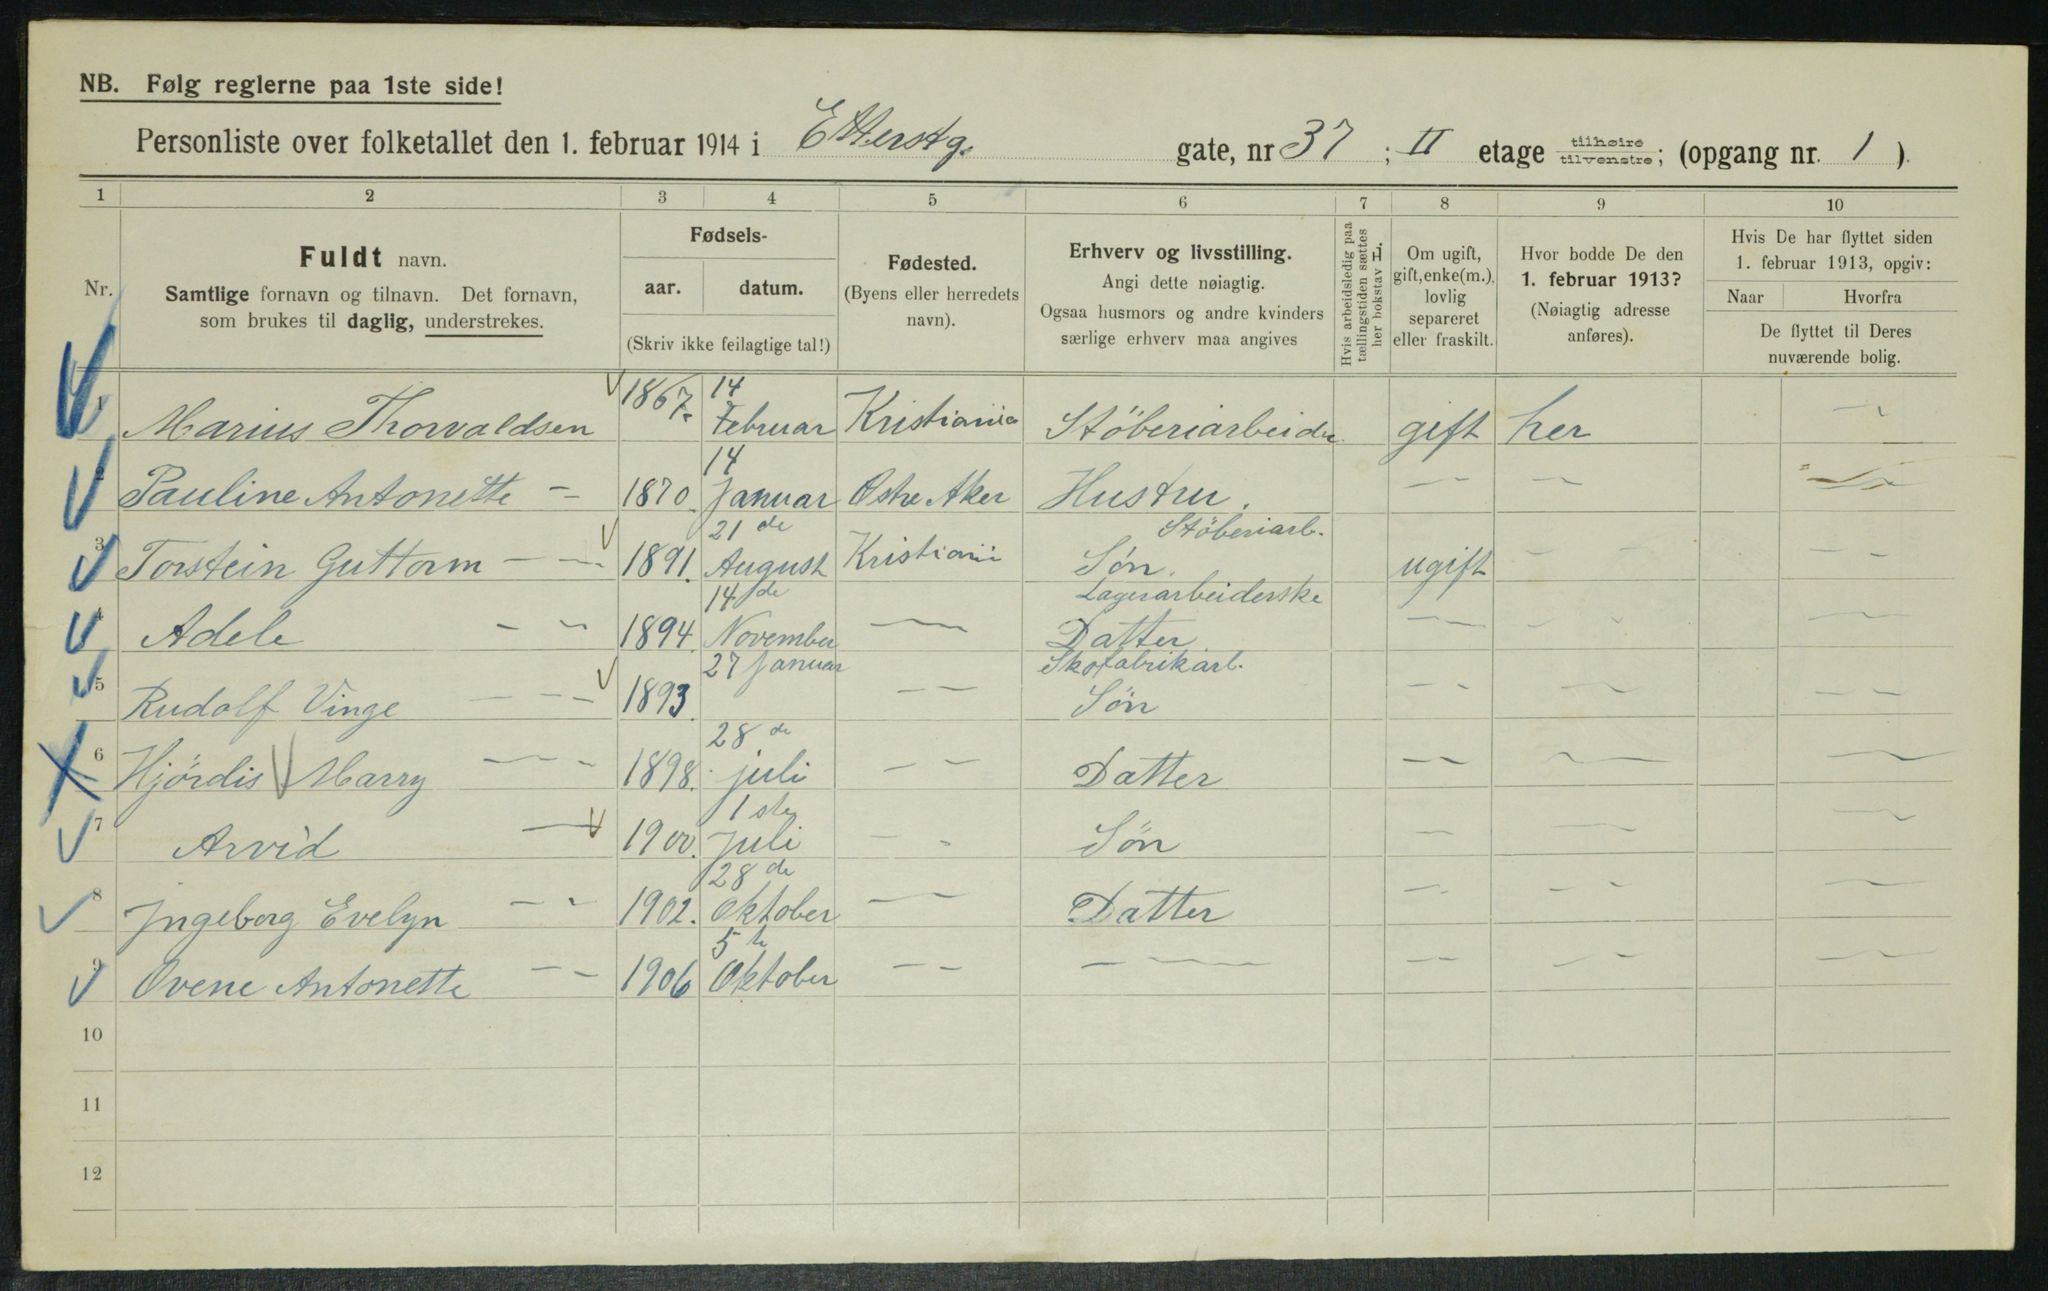 NB. Følg reglerne paa 1ste side!
Personliste over folketallet den 1. februar 1914 i Etterstg. gate, nr 37 ; II etage tilhøire tilvenstre; (opgang nr. 1 ).
1 2 3 4 5 6 7 8 9 10
Nr.
Fuldt navn.
Samtlige fornavn og tilnavn. Det fornavn,
som brukes til daglig, understrekes.
Fødsels-
aar. datum.
(Skriv ikke feilagtige tal!)
Fødested.
(Byens eller herredets
navn).
Erhverv og livsstilling.
Angi dette nøiagtig.
Ogsaa husmors og andre kvinders
særlige erhverv maa angives
Hvis arbeidsledig paa
tællingstiden sættes
her bokstav L.
Om ugift,
gift, enke(m.),
lovlig
separeret
eller fraskilt.
Hvor bodde De den
1. februar 1913?
(Nøiagtig adresse
anføres).
Hvis De har flyttet siden
1. februar 1913, opgiv:
Naar Hvorfra
De flyttet til Deres
nuværende bolig.
1 Marius Thorvaldsen 1867. 14 Februar Kristiania Støberiarbeider gift her —
2 Pauline Antonette — 1870. 14 Januar Østre Aker Hustru. — — —
3 Torstein Guttorm — — 1891. 21 de August Kristiania Støberiarb. Søn. ugift — — — —
4 Adele — — 1894. 14 de November — Lagerarbeiderske Datter — — — —
5 Rudolf Vinge — — 1893 27 Januar — — Skofabrikarb. Søn — — — — —
6 Hjördis Marry — — 1898. 28 de juli — — Datter — — — —
7 Arvid — 1900. 1 ste Juli — — Søn — — —
8 Ingeborg Evelyn — — 1902. 28 de Oktober — Datter — — — — —
9 Ovene Antonette — — 1906 5 te Oktober — — — — — — —
10
11
12